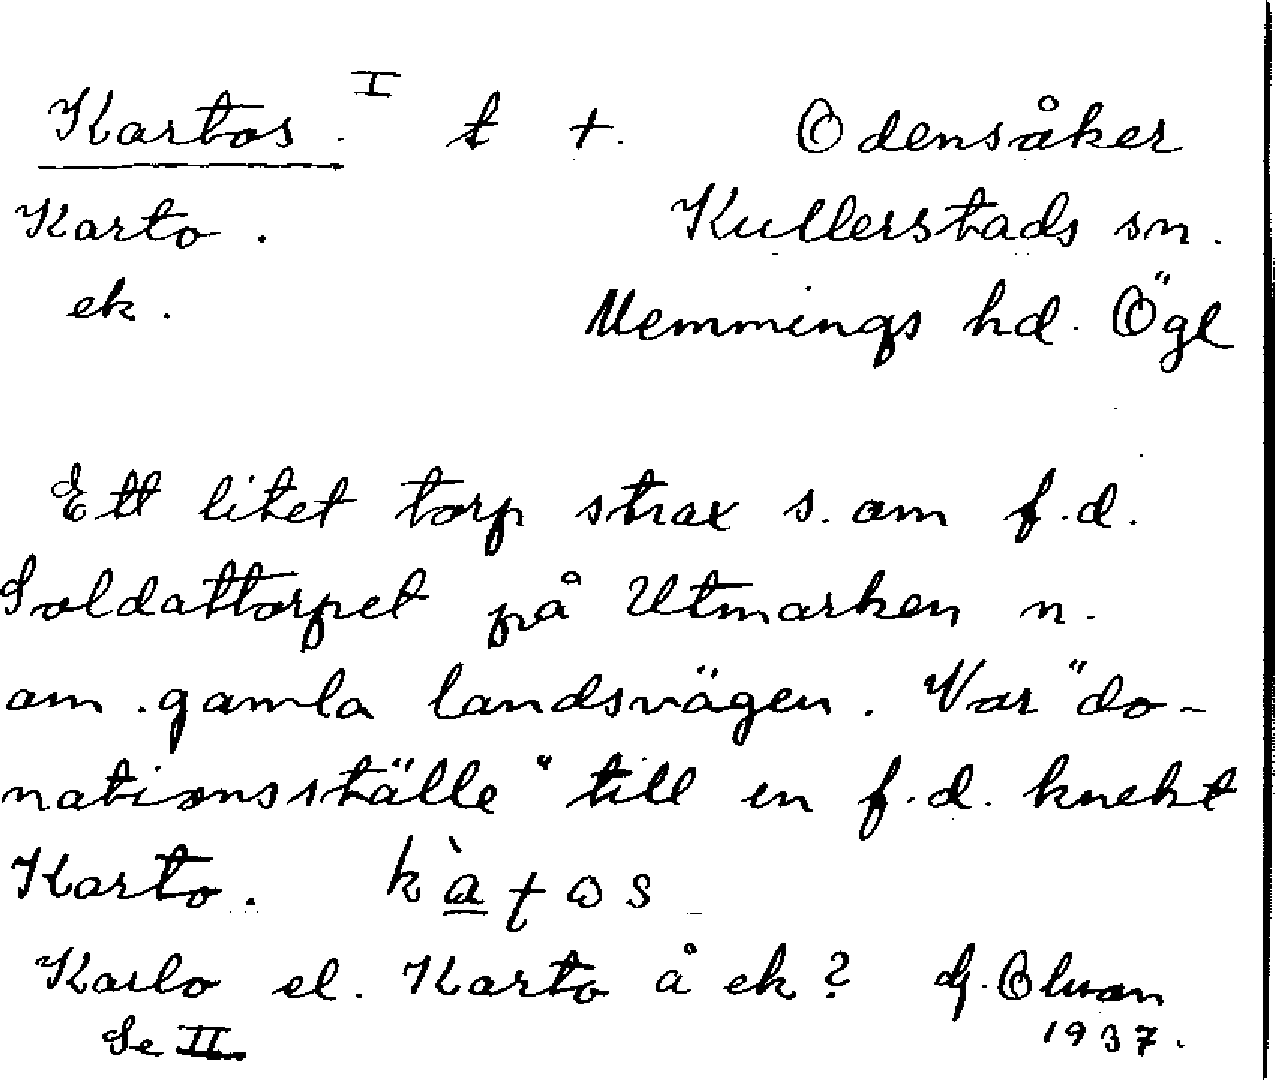 Kartos. I t +. Odensåker
Karto. Kullerstads sn.
ek. Memmings hd. Ögl
Ett litet torp strax s. om f.d.
Soldattorpet på Utmarken n.
om gamla landsvägen. Var "do-
nationsställe" till en f.d. knekt
Karto.
Karlo el. Karto å ek? Olsson
Se II. 1937.